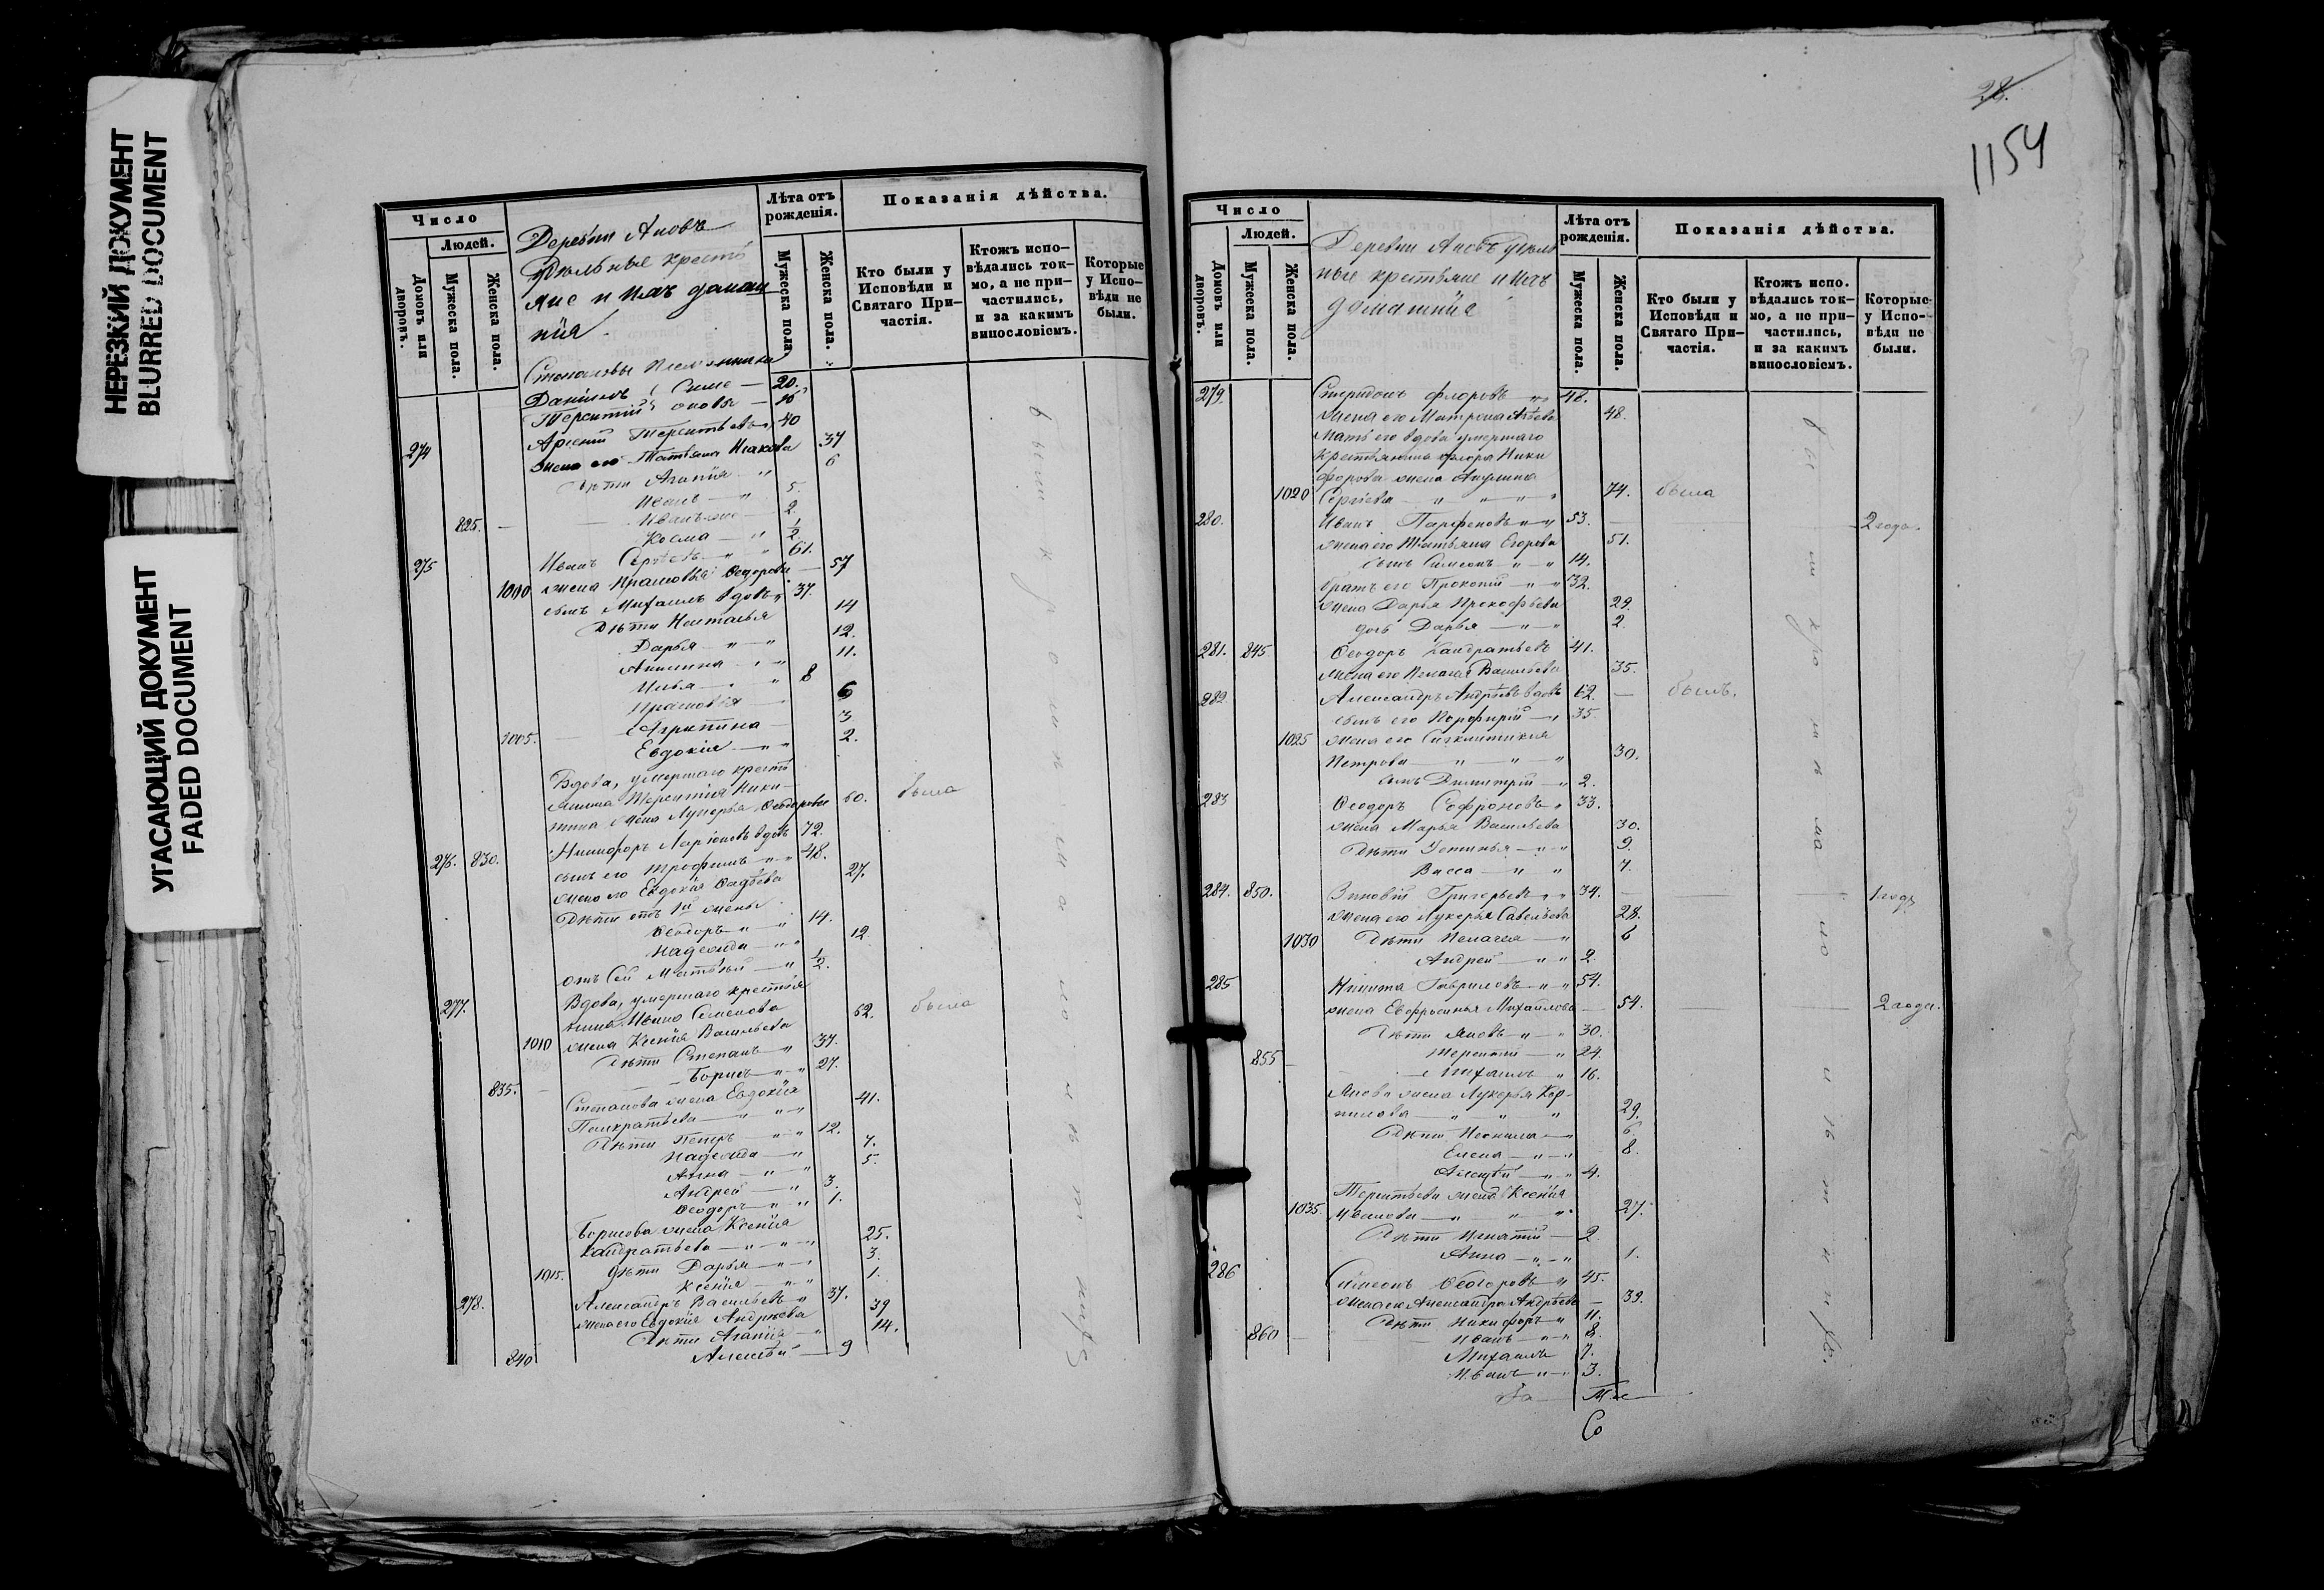 НЕРЕЗКИЙ ДОКУМЕНТ
BLURRED DOCUMENT
УГАСАЮЩИЙ ДОКУМЕНТ
FADED DOCUMENT
Число
Людей.
Домовъ или дворовъ.
Мужеска пола.
Женска пола.
Деревни Аковъ
Удѣльные кресть
яне и ихъ домаш
нія
Лѣта отъ рожденія.
Мужеска пола.
Женска пола.
Показанія дѣйства.
Кто были у Исповѣди и Святаго Причастія.
Ктожъ исповѣдались токмо, а не причастились, и за какимъ винословіемъ.
Которые у Исповѣди не были.
Степановы племянники
Даніилъ 20.
Терентій 16
274 Арсеній Терентьевъ 40
жена его Татьяна Исакова 37
дѣти Агапія 6
Иванъ 5.
825. Иванъ же 2.
Косма 1/2
275 Иванъ Сергѣевъ 61.
1000 жена Прасковья Ѳедорова 57
сынъ Михаилъ вдовъ 37.
Дѣти Наталья 14
Дарья 12.
Акилина 11.
Илья 8
Прасковья 6
1005. Агрипина 3
Евдокія 2.
Вдова, умершаго кресть
янина Терентія Ники
тина жена Лукерья Ѳеодорова 60. была
276. 830. Никифоръ Ларіоновъ вдовъ 72.
сынъ его Трофимъ 48.
жена его Евдокія Фадѣева 27.
Дѣти отъ 1й жены
Ѳеодоръ 14.
Надежда 12
отъ сей Матвѣй 1/2.
277. Вдова, умершаго крестья
нина Ивана Семенова
1010 жена Ксенія Васильева 62. была
Дѣти Степанъ 37.
835. Борисъ 27.
Степанова жена Евдокія
Панкратьева 41.
Дѣти Петръ 12.
Надежда 7.
Анна 5.
Андрей 3.
Ѳеодоръ 1.
Борисова жена Ксенія
Кандратьева 25.
1015. дѣти Дарья 3.
Ксенія 1.
278. Александръ Васильевъ 37.
жена его Евдокія Андреева 39
Дѣти Агапія 14.
840 Алексѣй 9
28.
1154
Число
Людей.
Домовъ или дворовъ.
Мужеска пола.
Женска пола.
Деревни Аковъ удѣль
ные крестьяне и ихъ
домашнія
Лѣта отъ рожденія.
Мужеска пола.
Женска пола.
Показанія дѣйства.
Кто были у Исповѣди и Святаго Причастія.
Ктожъ исповѣдались токмо, а не причастились, и за какимъ винословіемъ.
Которые у Исповѣди не были.
279. Спиридонъ Флоровъ 48.
жена его Матрона 48.
Мать его вдова умершаго
крестьянина Флора Ники
форова жена Акулина
1020 Сергѣева 74. была
280. Иванъ Парфеновъ 53. 2 года.
жена его Татьяна Егорова 51.
сынъ Симеонъ 14.
братъ его Прокопій 32.
жена Дарья Прокофьева 29.
дочь Дарья 2.
281. 845 Ѳеодоръ Кандратьевъ 41.
жена его Пелагея Васильева 35.
282 Александръ Андрѣевъ вдовъ 62. былъ.
сынъ его Порфирій 35.
1025 жена его Сигклитикія
Петрова 30.
сынъ Димитрій 2.
283 Ѳеодоръ Софроновъ 33.
жена Марья Васильева 30.
Дѣти Устинья 9.
Васса 7.
284. 850. Зиновій Григорьевъ 34. 1 годъ
жена его Лукерья Савельева 28.
1030 Дѣти Пелагея 6
Андрей 2.
285 Никита Гавриловъ 54.
жена Евфросинья Михайлова 54. 2 года.
Дѣти Яковъ 30.
855 Терентій 24.
Михаилъ 16.
Якова жена Лукерья Кор
нилова 29.
Дѣти 6
Елена 8.
Алексѣй 4.
Терентьева жена Ксенія
1035. Иванова 27.
Дѣти Игнатій 2
Анна 1.
286 Симеонъ Ѳеодоровъ 45.
жена его Александра Андрѣева 39.
Дѣти Никифоръ 11.
860 Иванъ 8.
Михаилъ 7.
Иванъ 3.
Со